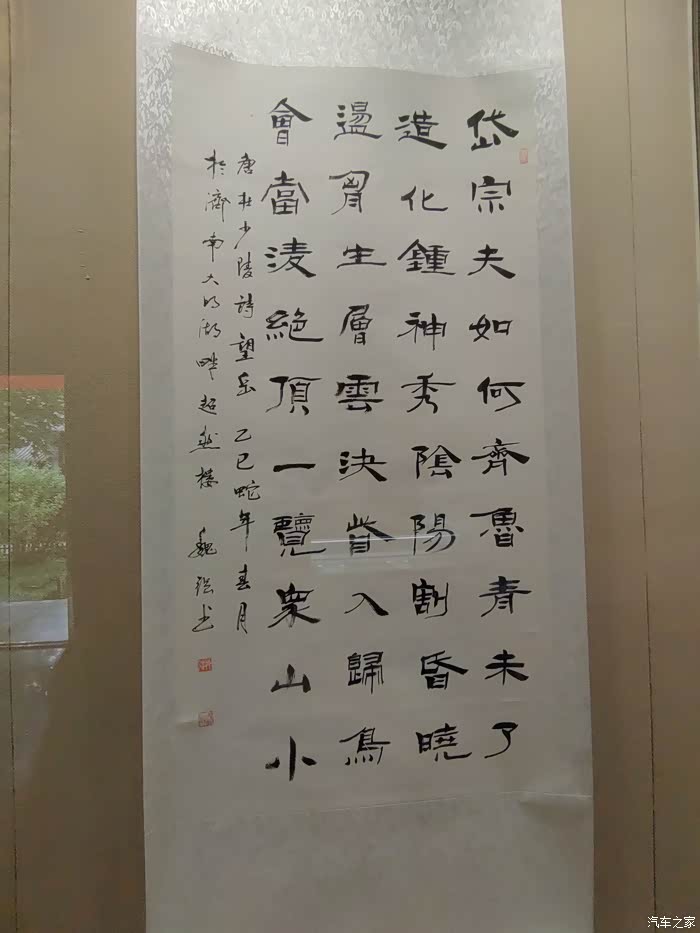 岱宗夫如何齊魯青未了
造化鍾神秀陰陽割昏曉
盪胷生層雲決眥入歸鳥
會當淩絶頂一覽衆山小
唐杜少陵詩望岳乙巳蛇年春月
於濟南大明湖畔超然樓 魏强书
汽车之家